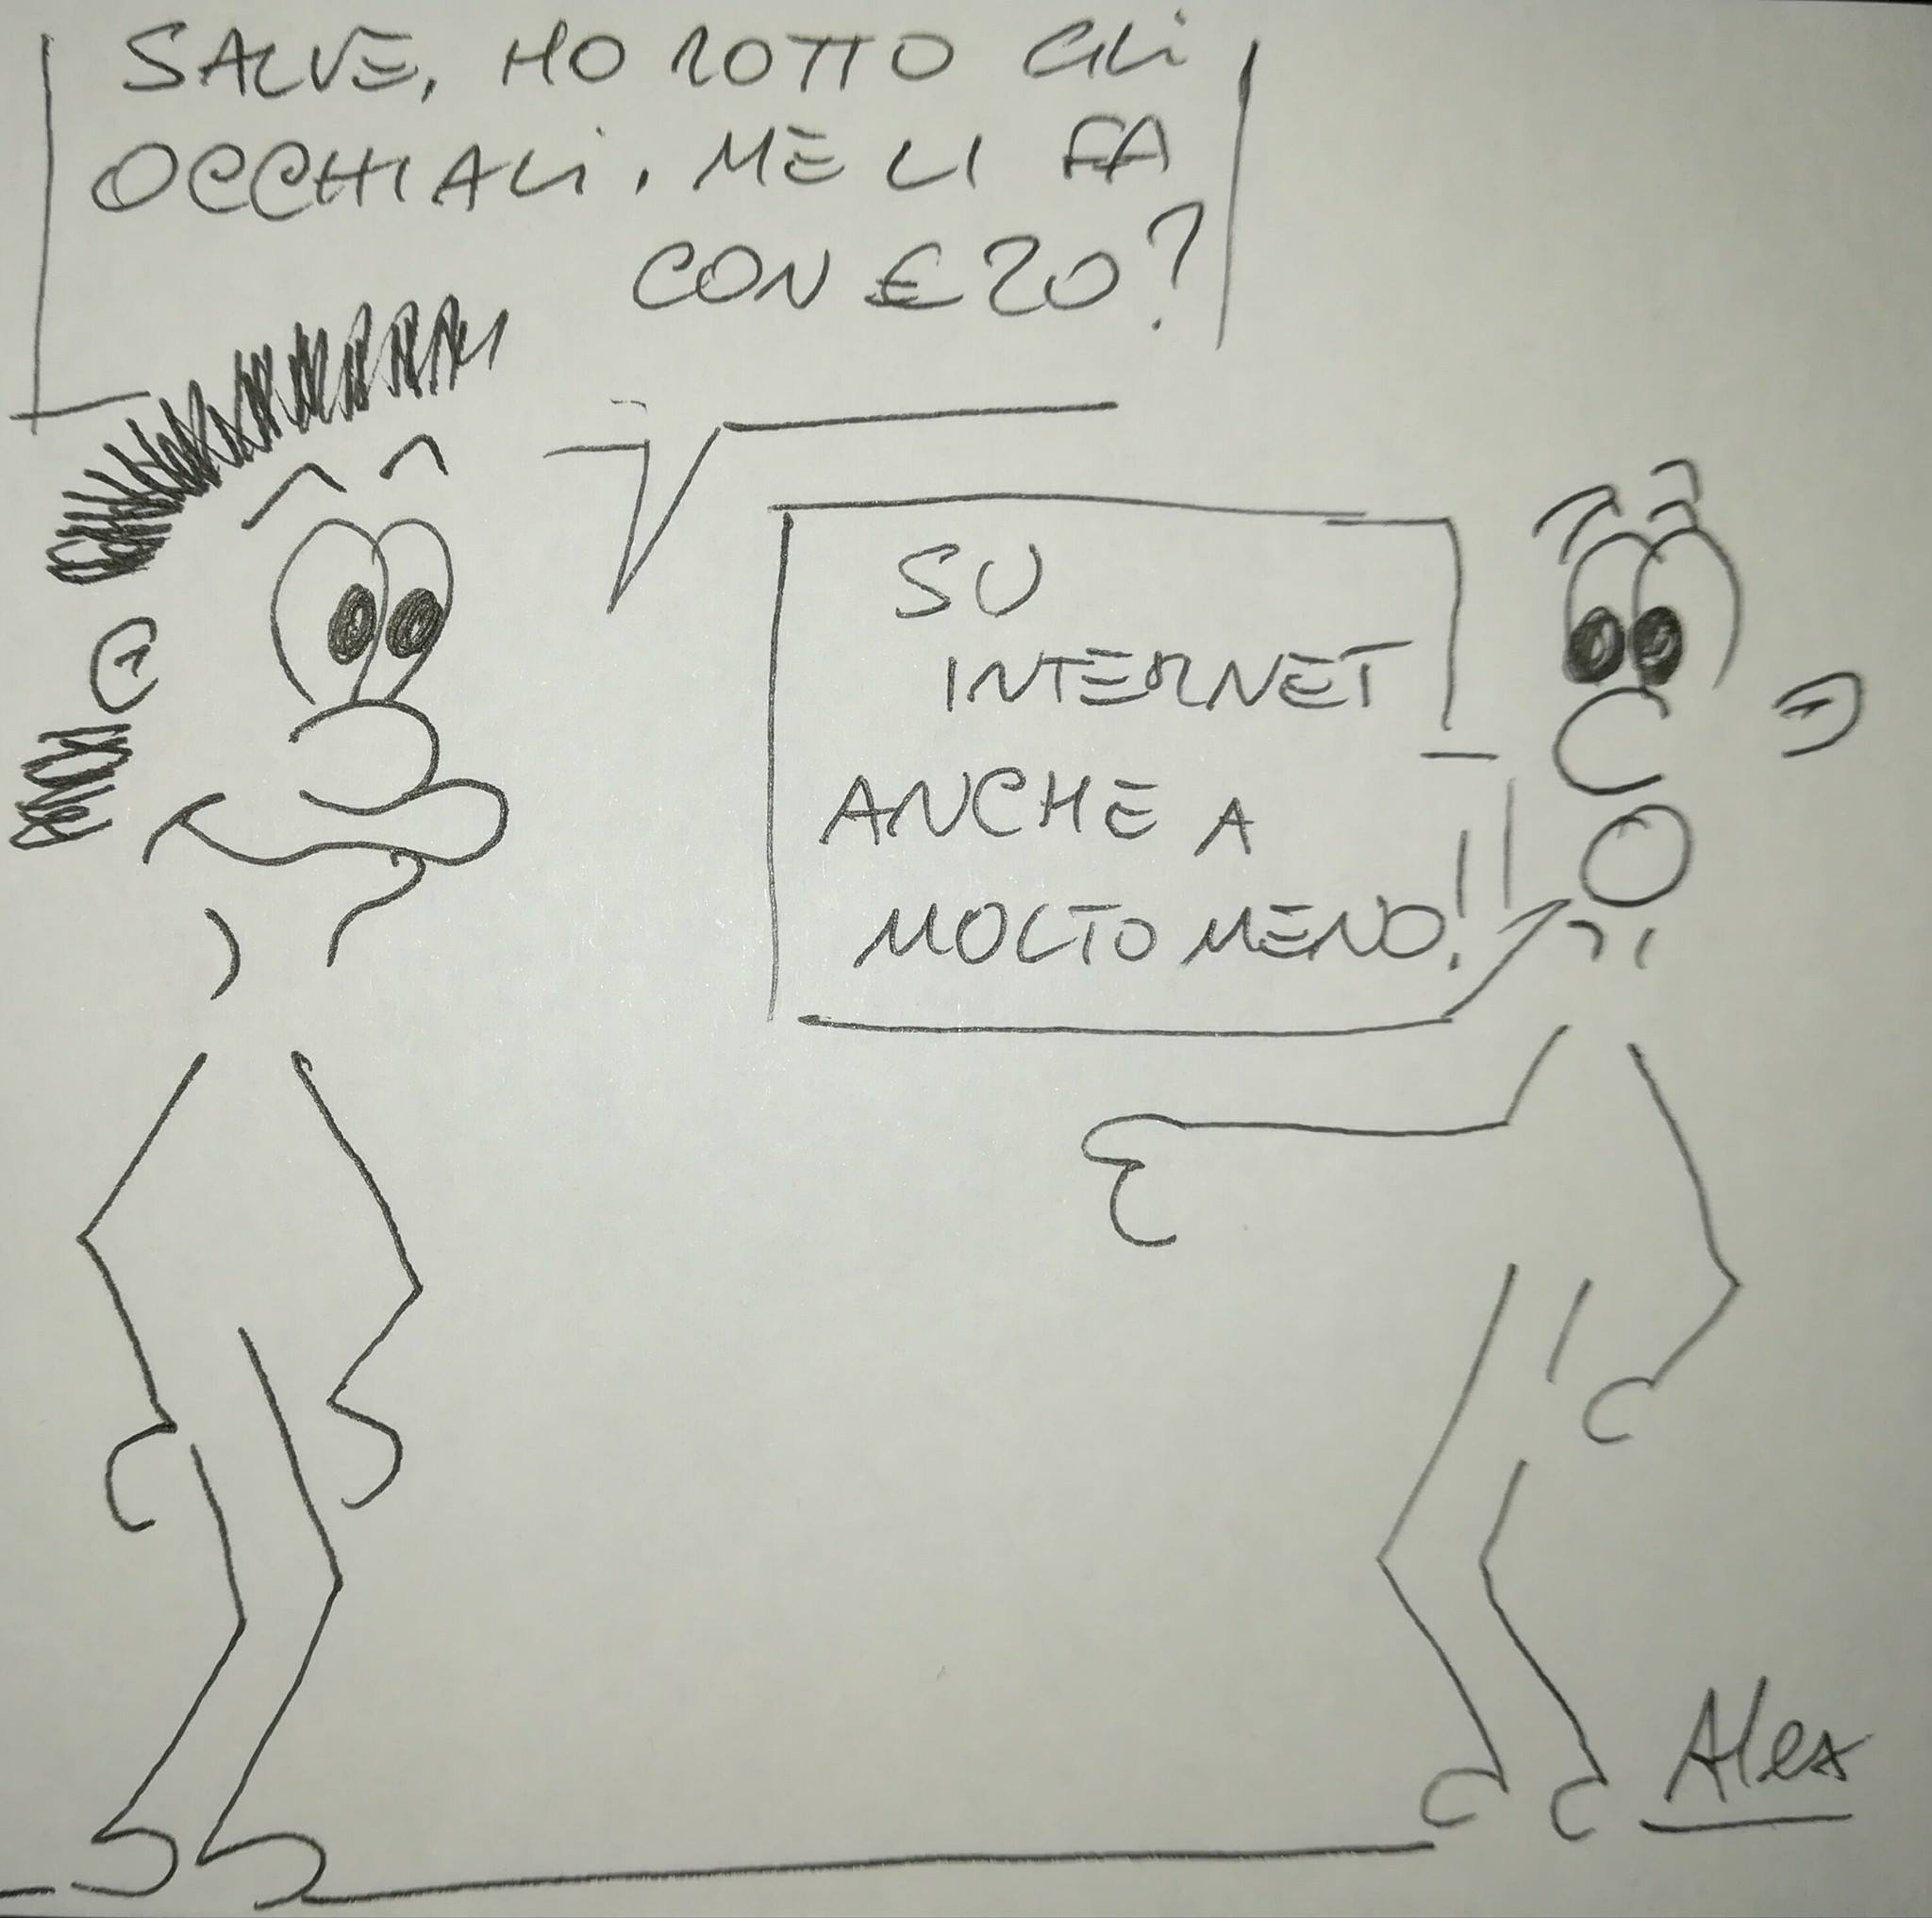 SALVE, HO ROTTO GLi
OCCHIALi. ME LI FA
CON € 20?
SU
INTERNET
ANCHE A
MOLTO MENO!
Alex